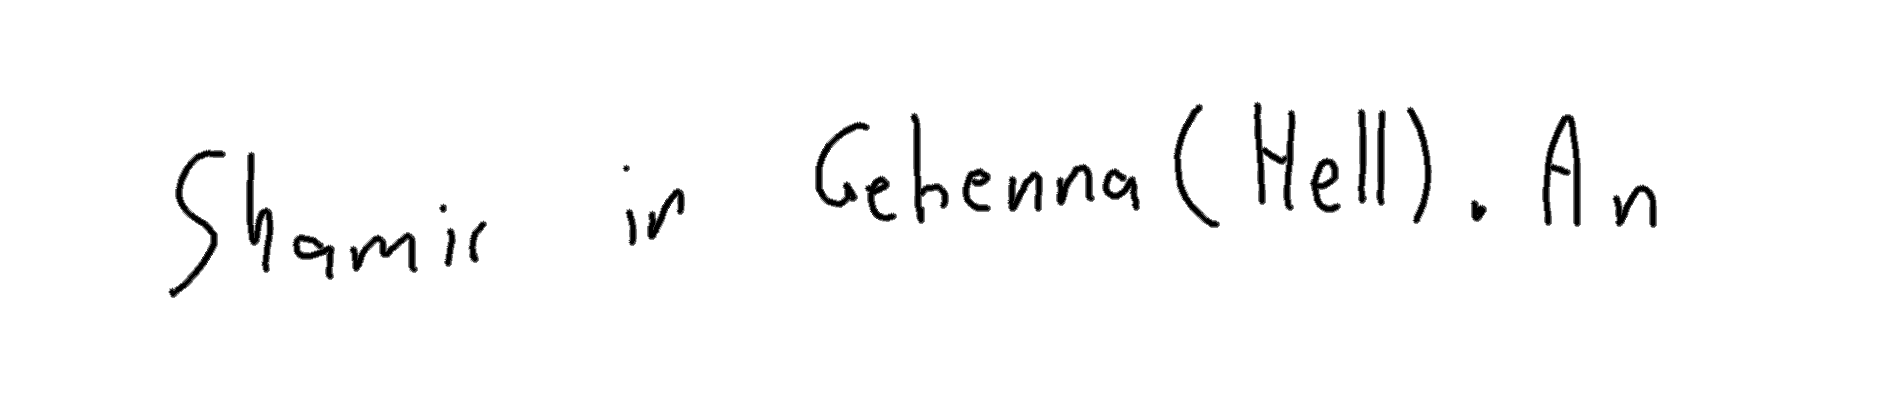 Shamir in Gehenna (Hell). An